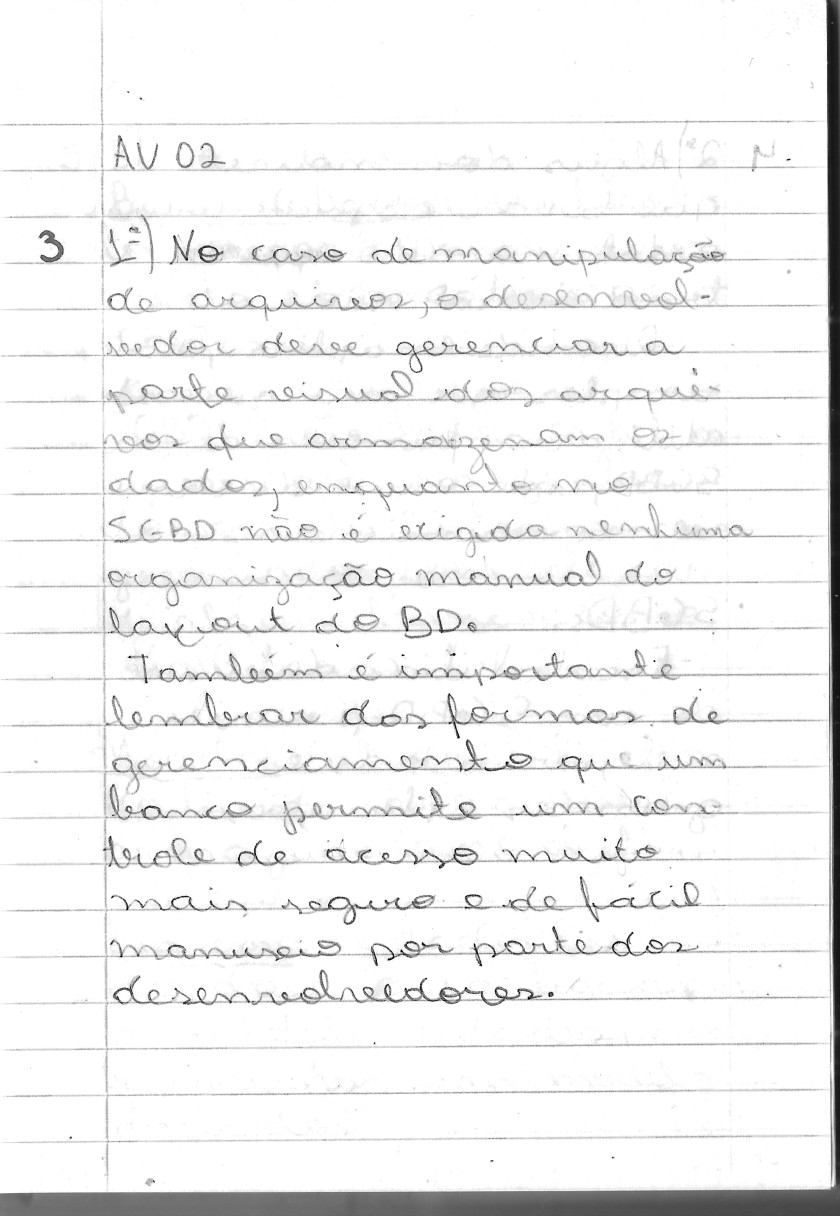 AV 02
3 1ª) No caso de manipulação
de arquivos, o desenvol-
vedor deve gerenciar a
parte visual dos arqui-
vos que armazenam os
dados, enquanto no
SGBD não é exigida nenhuma
organização manual do
layout do BD.
Também é importante
lembrar das formas de
gerenciamento que um
banco permite um con-
trole de acesso muito
mais seguro e de fácil
manuseio por parte dos
desenvolvedores.